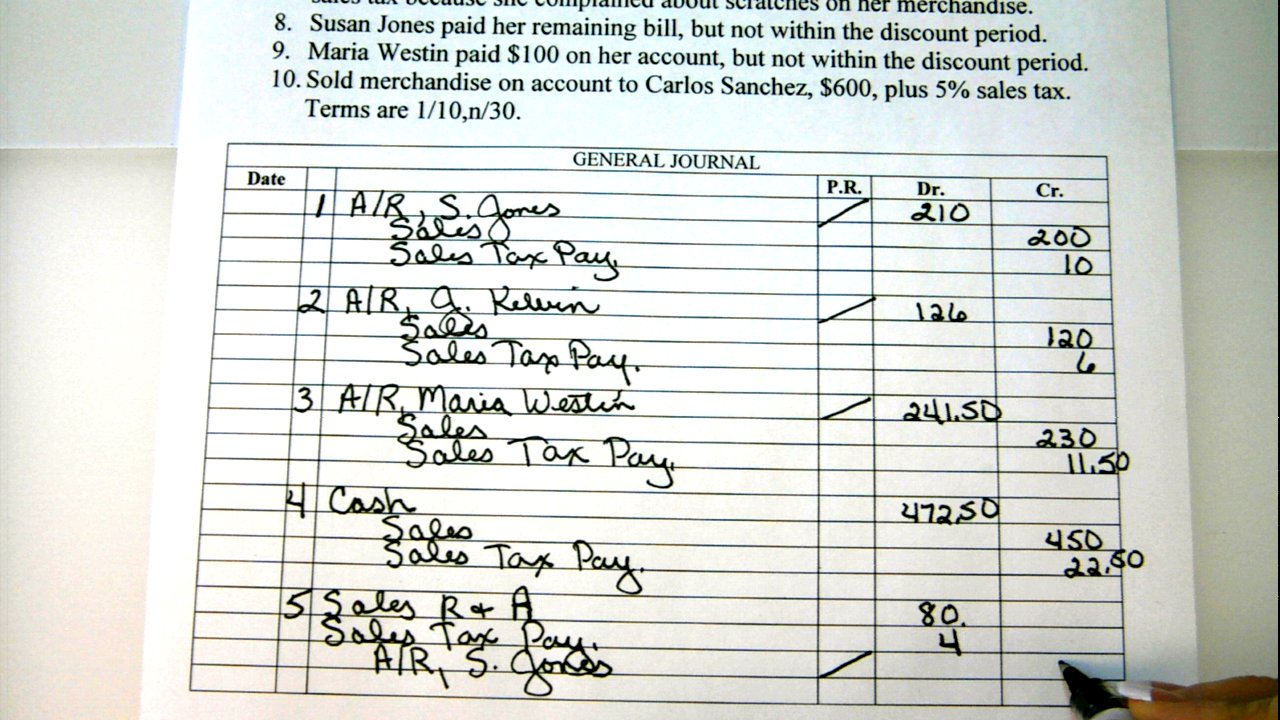 sales tax because she complained about scratches on her merchandise.
8. Susan Jones paid her remaining bill, but not within the discount period.
9. Maria Westin paid $100 on her account, but not within the discount period.
10. Sold merchandise on account to Carlos Sanchez, $600, plus 5% sales tax.
Terms are 1/10,n/30.
GENERAL JOURNAL
Date P.R. Dr. Cr.
1 A/R, S. Jones 210
Sales 200
Sales Tax Pay. 10
2 A/R, A. Kelvin 126
Sales 120
Sales Tax Pay. 6
3 A/R, Maria Westin 241.50
Sales 230
Sales Tax Pay. 11.50
4 Cash 472.50
Sales 450
Sales Tax Pay. 22.50
5 Sales R & A 80.
Sales Tax Pay. 4
A/R, S. Jones